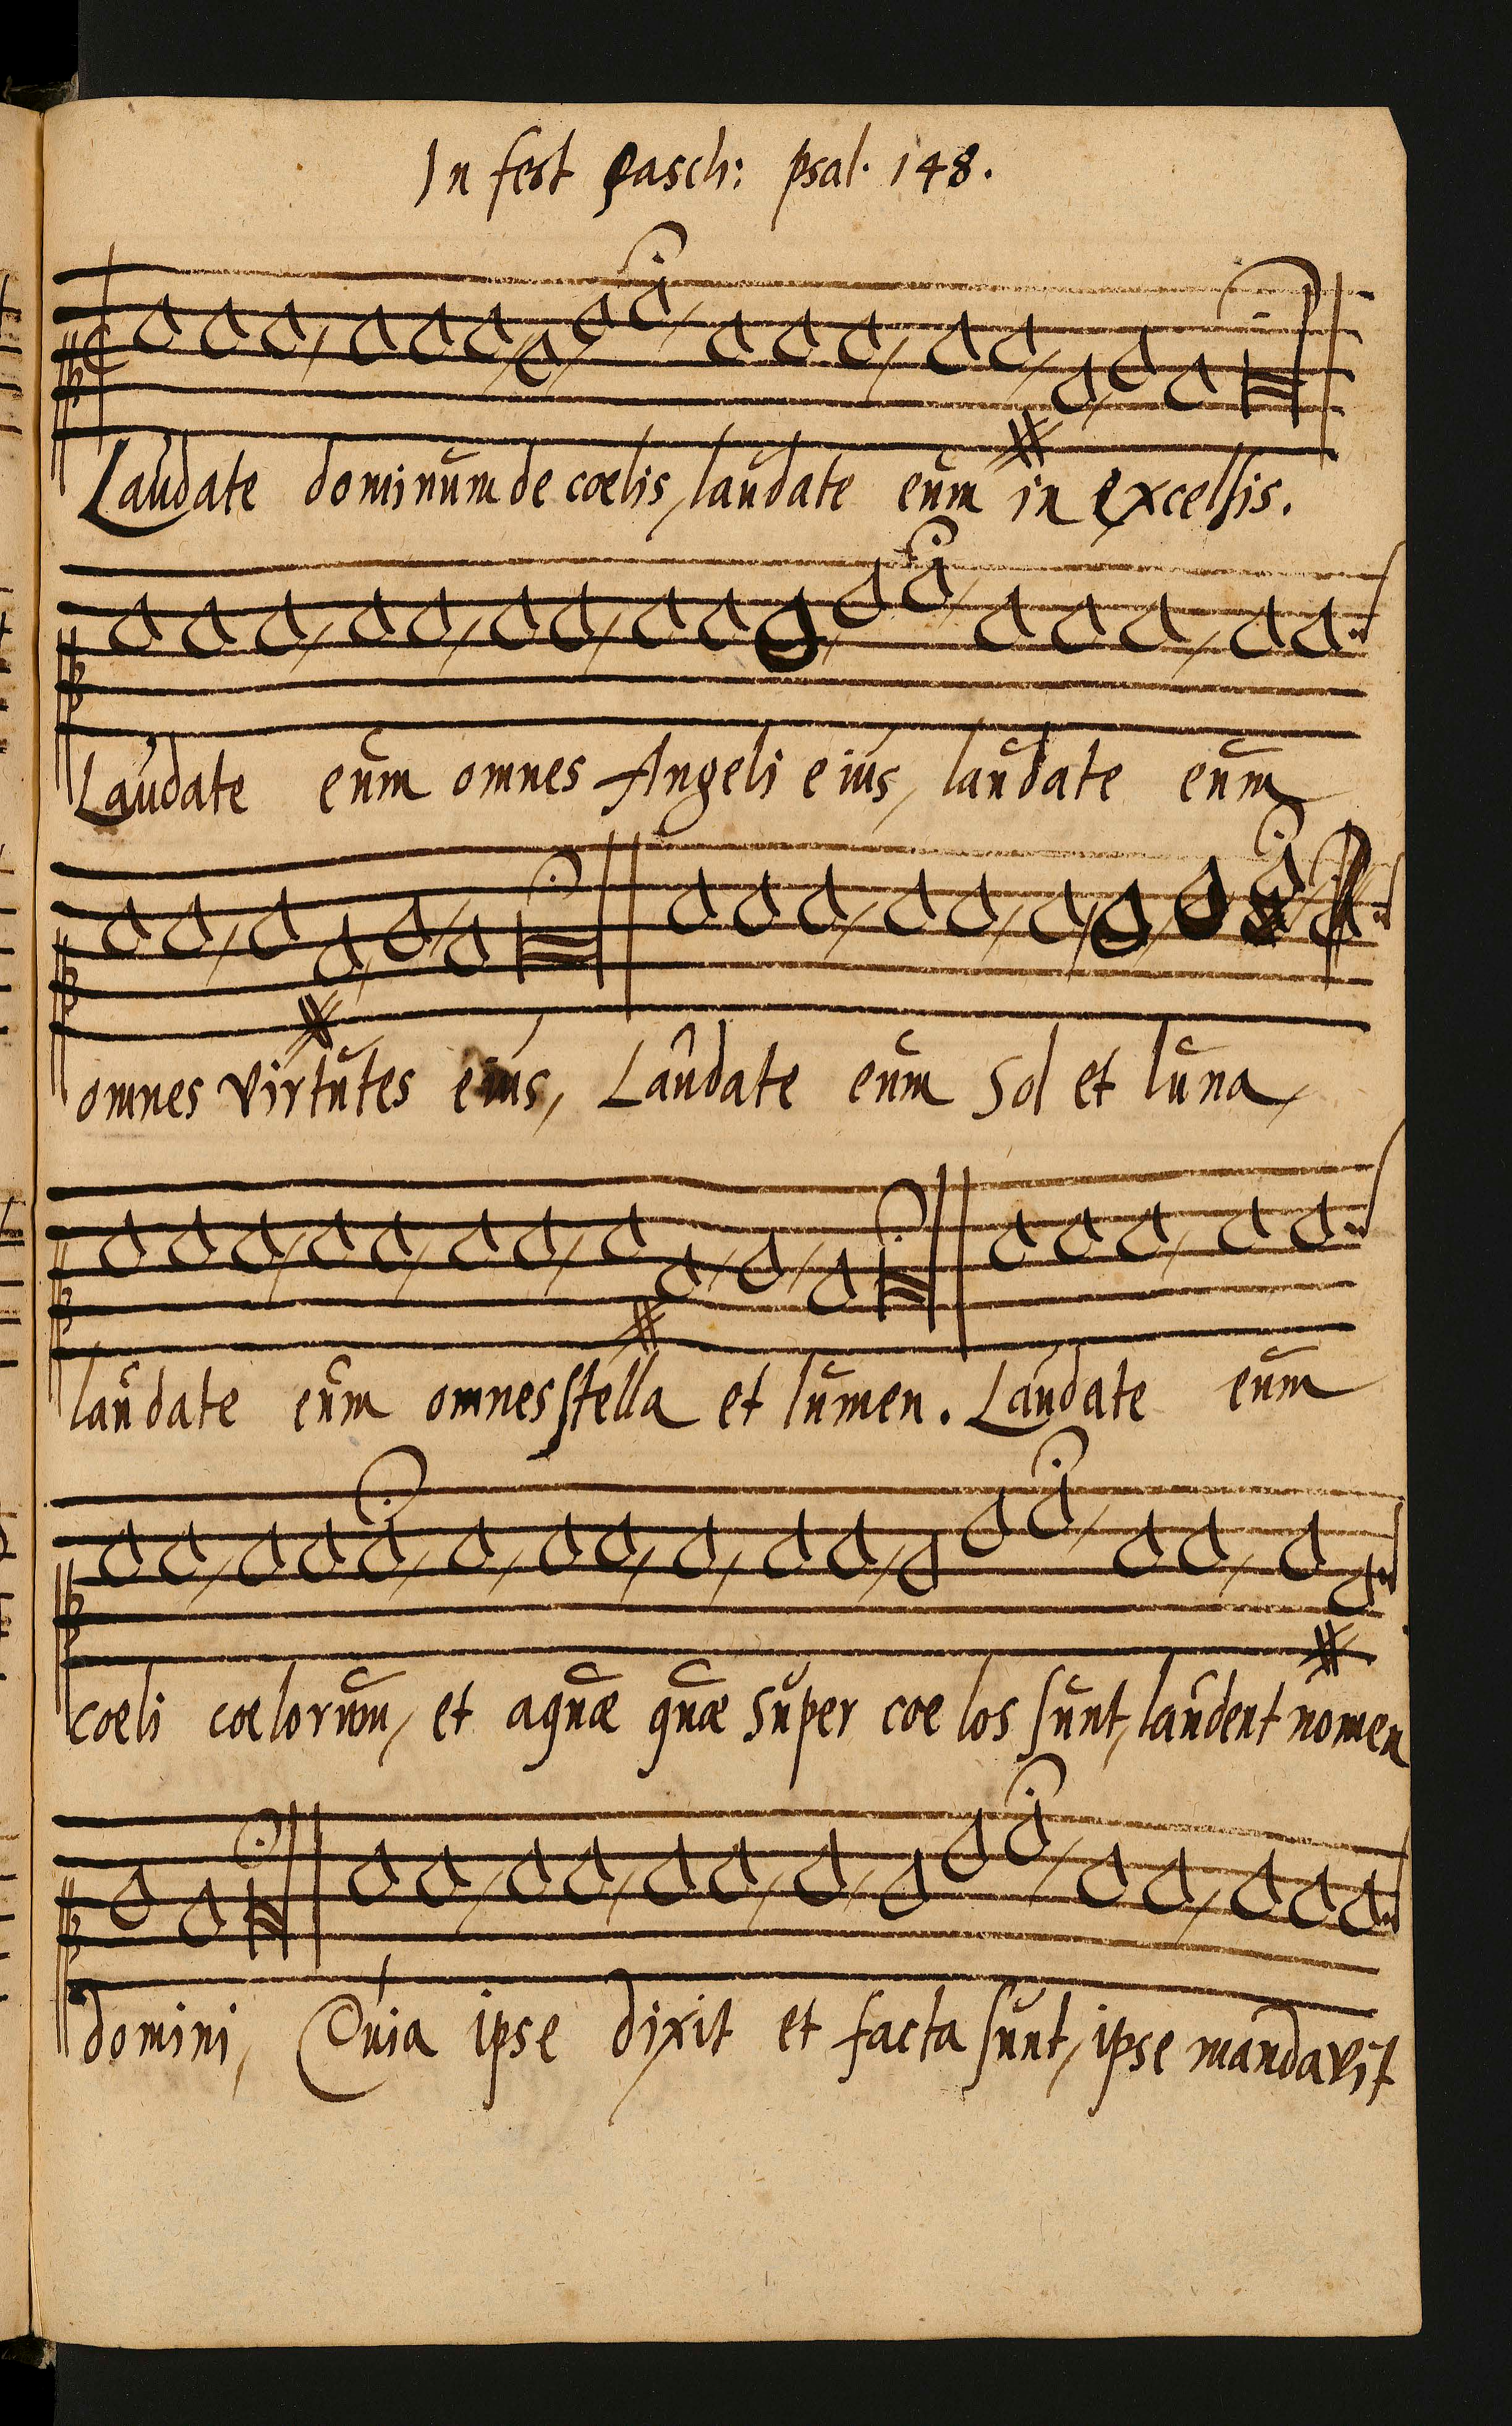 In fest Pasch: psal. 148.
Laudate dominum de cœlis, laudate eum in excelsis.
Laudate eum omnes Angeli eius, laudate eum
omnes virtutes eius, Laudate eum Sol et luna,
laudate eum omnes stella et lumen. Laudate eum
coeli cœlorum, et aquæ quæ super coelos sunt, laudent nomen
domini, Quia ipse dixit et facta sunt, ipse mandavit